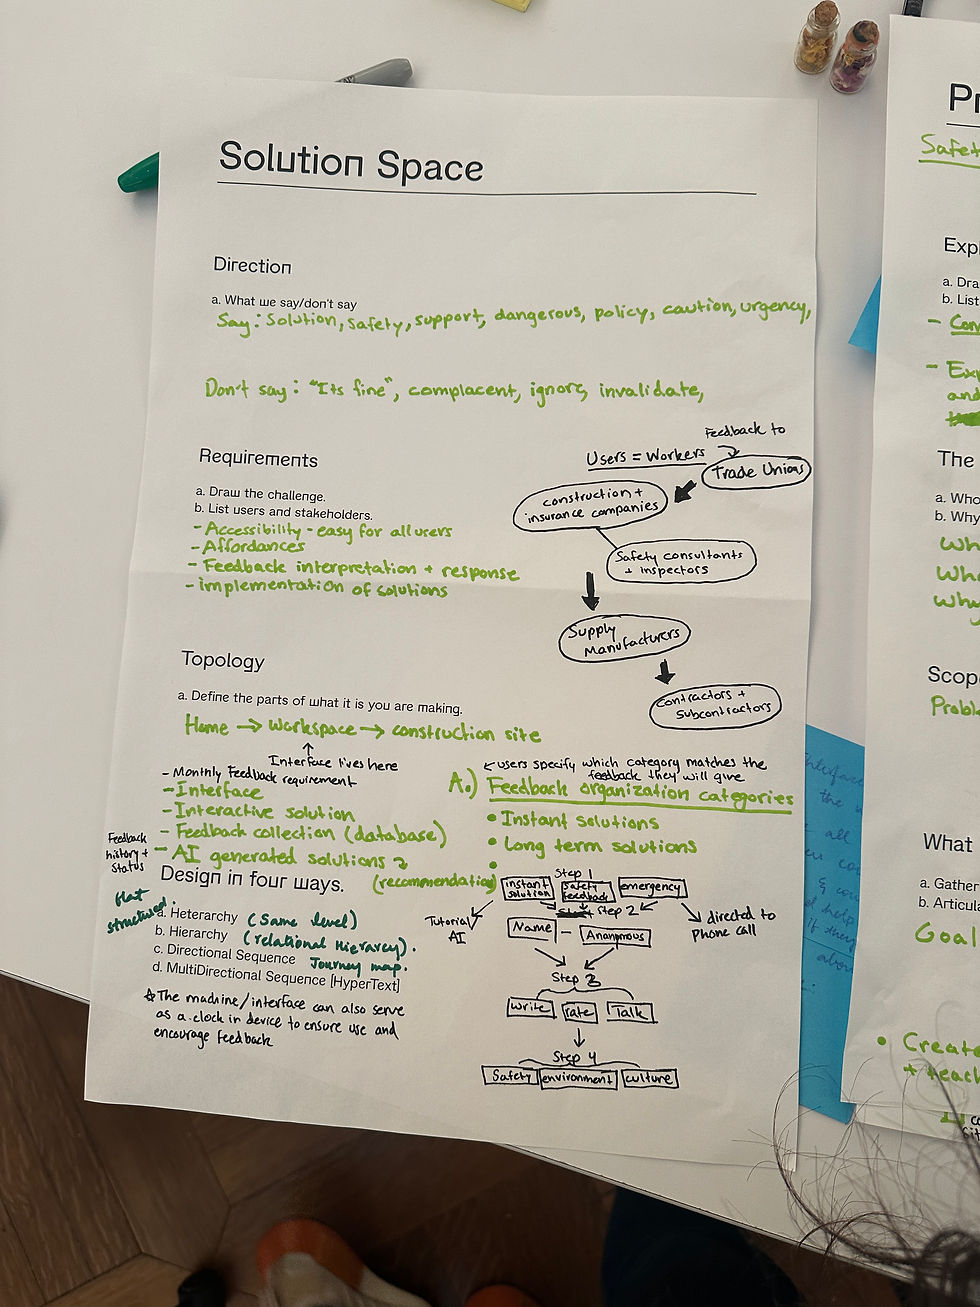 Solution Space
Direction
a. What we say/don't say
Say: Solution, safety, support, dangerous, policy, caution, urgency,
Don't say: "Its fine", complacent, ignore, invalidate,
Requirements
a. Draw the challenge.
b. List users and stakeholders.
- Accessibility - easy for all users
- Affordances
- Feedback interpretation + response
- implementation of solutions
Feedback to
Users = Workers
Trade Unions
construction +
insurance companies
Safety consultants
+ inspectors
Supply
Manufacturers
contractors +
subcontractors
Topology
a. Define the parts of what it is you are making.
Home → Workspace → construction site
↑
Interface lives here
- Monthly Feedback requirement
- Interface
- Interactive solution
- Feedback collection (database)
- AI generated solutions
(recommendation)
Feedback
history +
status
users specify which category matches the
feedback they will give
A.) Feedback organization categories
• Instant solutions
• Long term solutions
•
Design in four ways.
flat
structured.
a. Heterarchy (Same level)
b. Hierarchy (relational Hierarcy).
c. Directional Sequence Journey map.
d. MultiDirectional Sequence [HyperText]
☆ The machine/interface can also serve
as a clock in device to ensure use and
encourage feedback
Step 1
instant
solution
safety
feedback
emergency
Tutorial
AI
step 2
directed to
phone call
Name - Ananymous
Step 3
write rate Talk
Step 4
Safety environment culture
Pr
Safet
Exp
a. Dra
b. List
- Con
- Exp
and
The
a. Who
b. Why
Wh
Wh
Why
Scop
Probl
What
a. Gather
b. Articula
Goal
• Create
+ teach